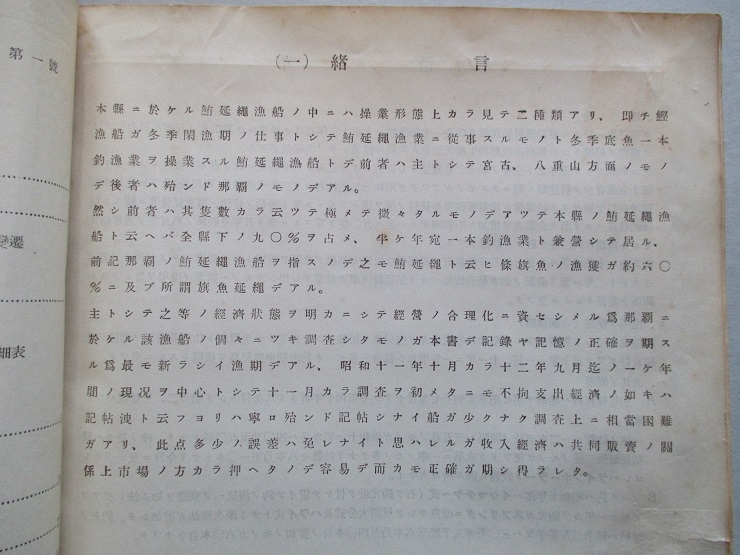 第一號
變遷
細表
(一) 緒言
本縣ニ於ケル鮪延繩漁船ノ中ニハ操業形態上カラ見テ二種類アリ、即チ鰹
漁船ガ冬季閑漁期ノ仕事トシテ鮪延繩漁業ニ從事スルモノト冬季底魚一本
釣漁業ヲ操業スル鮪延繩漁船トデ前者ハ主トシテ宮古、八重山方面ノモノ
デ後者ハ殆ンド那覇ノモノデアル。
然シ前者ハ其隻數カラ云ツテ極メテ微々タルモノデアツテ本縣ノ鮪延繩漁
船ト云ヘバ全縣下ノ九〇%ヲ占メ、半ケ年宛一本釣漁業ト兼營シテ居ル、
前記那覇ノ鮪延繩漁船ヲ指スノデ之モ鮪延繩ト云ヒ條旗魚ノ漁獲ガ約六〇
%ニ及ブ所謂旗魚延繩デアル。
主トシテ之等ノ經濟狀態ヲ明カニシテ經營ノ合理化ニ資セシメル爲那覇ニ
於ケル該漁船ノ個々ニツキ調査シタモノガ本書デ記錄ヤ記憶ノ正確ヲ期ス
ル爲最モ新ラシイ漁期デアル、昭和十一年十月カラ十二年九月迄ノ一ケ年
間ノ現況ヲ中心トシテ十一月カラ調査ヲ初メタニモ不拘支出經濟ノ如キハ
記帖洩ト云フヨリハ寧ロ殆ンド記帖シナイ船ガ少クナク調査上ニ相當困難
ガアリ、此点多少ノ誤差ハ免レナイト思ハレルガ收入經濟ハ共同販賣ノ關
係上市場ノ方カラ押ヘタノデ容易デ而カモ正確ガ期シ得ラレタ。